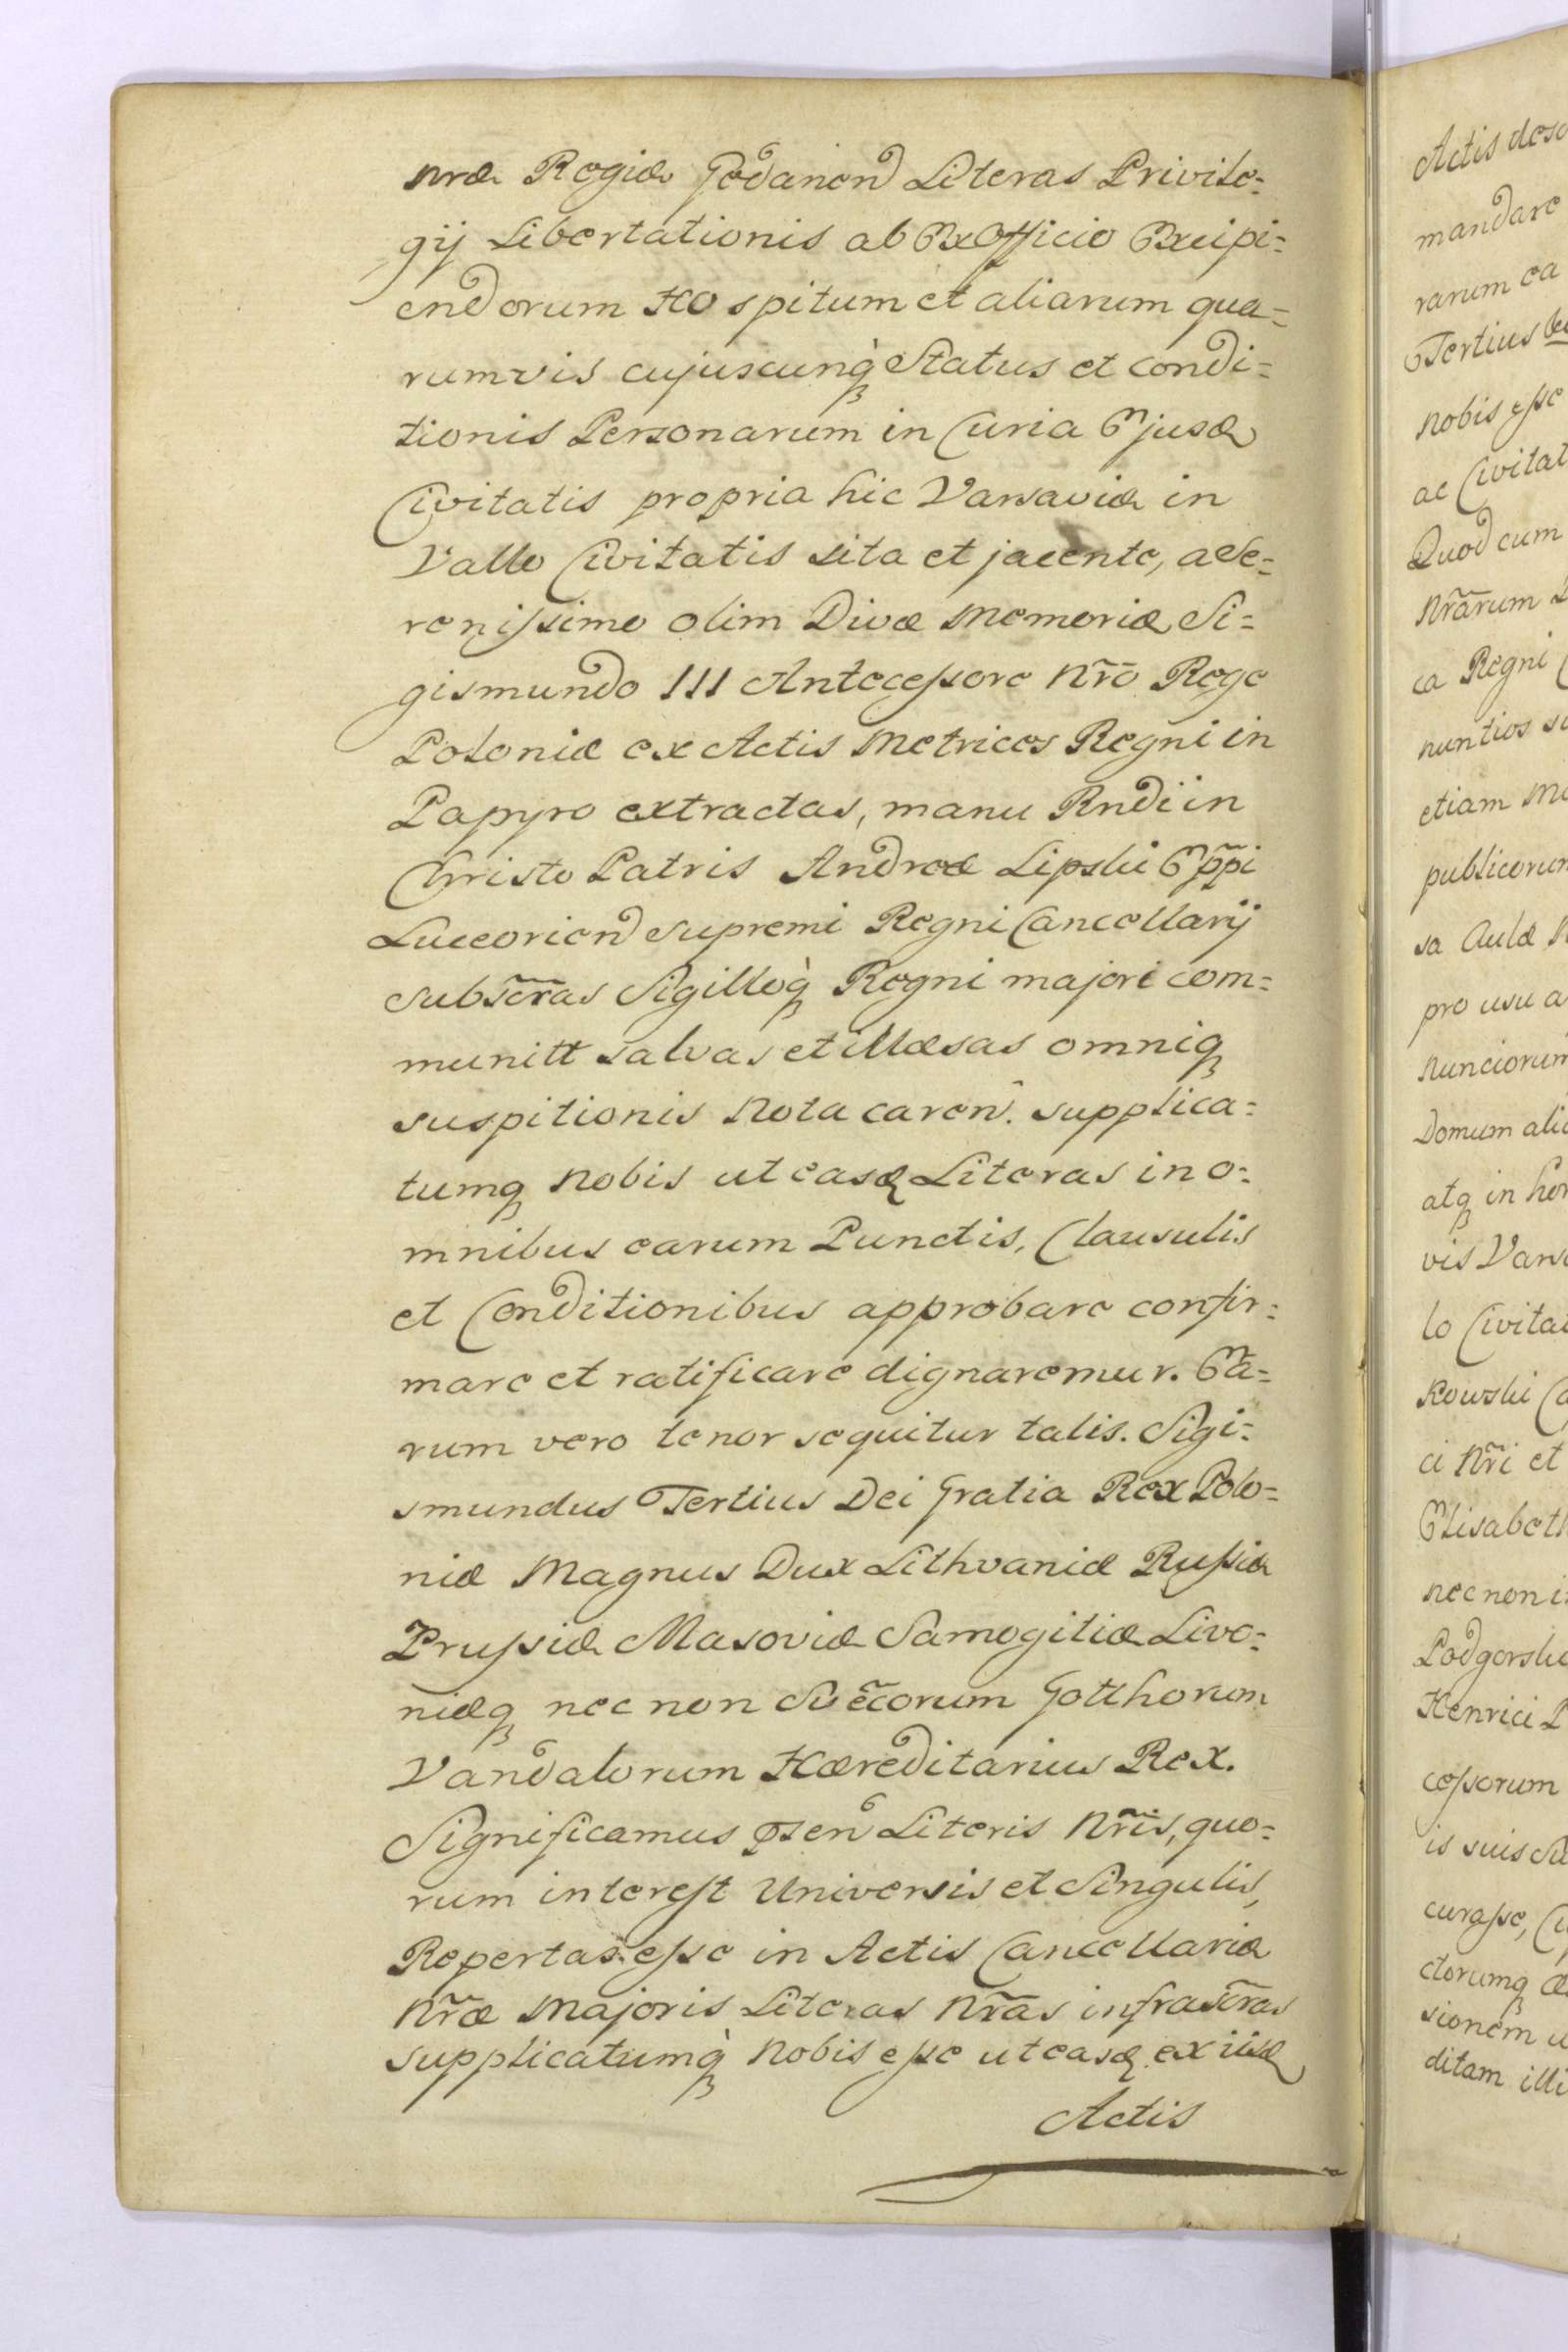 nræ Regiæ Gedanen Literas Privile=
gij Libertationis ab Ex Officio Excipi=
endorum Hospitum et aliarum qua=
rumvis cujuscunq̀ Status et condi=
tionis Personarum in Curia Ejusd
Civitatis propria hic Varsaviæ in
Vallo Civitatis sita et jacente, a Se=
renissimo olim Divæ Memoriæ Si=
gismundo III Antecessore Nr̃o Rege
Poloniæ ex Actis Metrices Regni in
Papyro extractas, manu Rndi in
Christo Patris Andreæ Lipski Ep̃pi
Lucceorien supremi Regni Cancellarij
subscr̃as Sigilloq̀ Regni majori com=
munitt salvas et illæsas omniq
suspitionis Nota caren. supplica=
tumq Nobis ut easd Literas in o=
mnibus earum Punctis, Clausulis
et Conditionibus approbare confir=
mare et ratificare dignaremur. Ea=
rum vero tenor sequitur talis. Sigi=
smundus Tertius Dei Gratia Rex Polo=
niæ Magnus Dux Lithvaniæ Russiæ
Prussiæ Masoviæ Samogitiæ Livo=
niæq nec non Svecorum Gotthorum
Vandalorum Hæreditarius Rex.
Significamus psen Literis Nr̃is, quo=
rum interest Universis et Singulis,
Repertas esse in Actis Cancellariæ
Nr̃æ Majoris Literas Nr̃as infrascr̃as
supplicatumq̀ Nobis esse ut easd ex iisd
Actis
Actis
mandare
rarum ea
Tertius
Nobis esse
ac Civitat
Quod cum
Nr̃arum
ca Regni
nuntios
etiam
publicorum
sa Aulæ
pro usu a
Nunciorum
Domum
atq in
vis
lo
Kowski
ci Nr̃i et
Elisabeth
nec non
Podgorski
Henrici
cessorum
is suis
curasse,
ctorumq
sionem
ditam